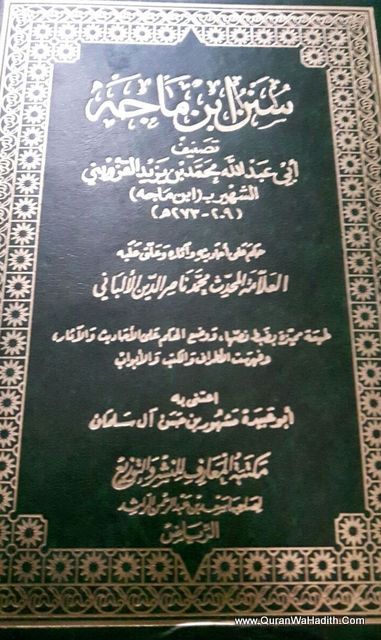 سنن ابن ماجه
تصنيف
أبي عبد الله محمد بن يزيد القزويني
الشهير بـ (ابن ماجه)
(٢٠٩ - ٢٧٣ هـ)
حكم على أحاديثه وآثاره وعلق عليه
العلامة المحدث محمد ناصر الدين الألباني
طبعة مميزة بضبط نصها، ووضع الحكم على الأحاديث والآثار،
وفهرست الأطراف والكتب والأبواب
اعتنى به
أبو عبيدة مشهور بن حسن آل سلمان
مكتبة المعارف للنشر والتوزيع
لصاحبها سعد بن عبد الرحمن الراشد
الرياض
www.QuranWaHadith.Com